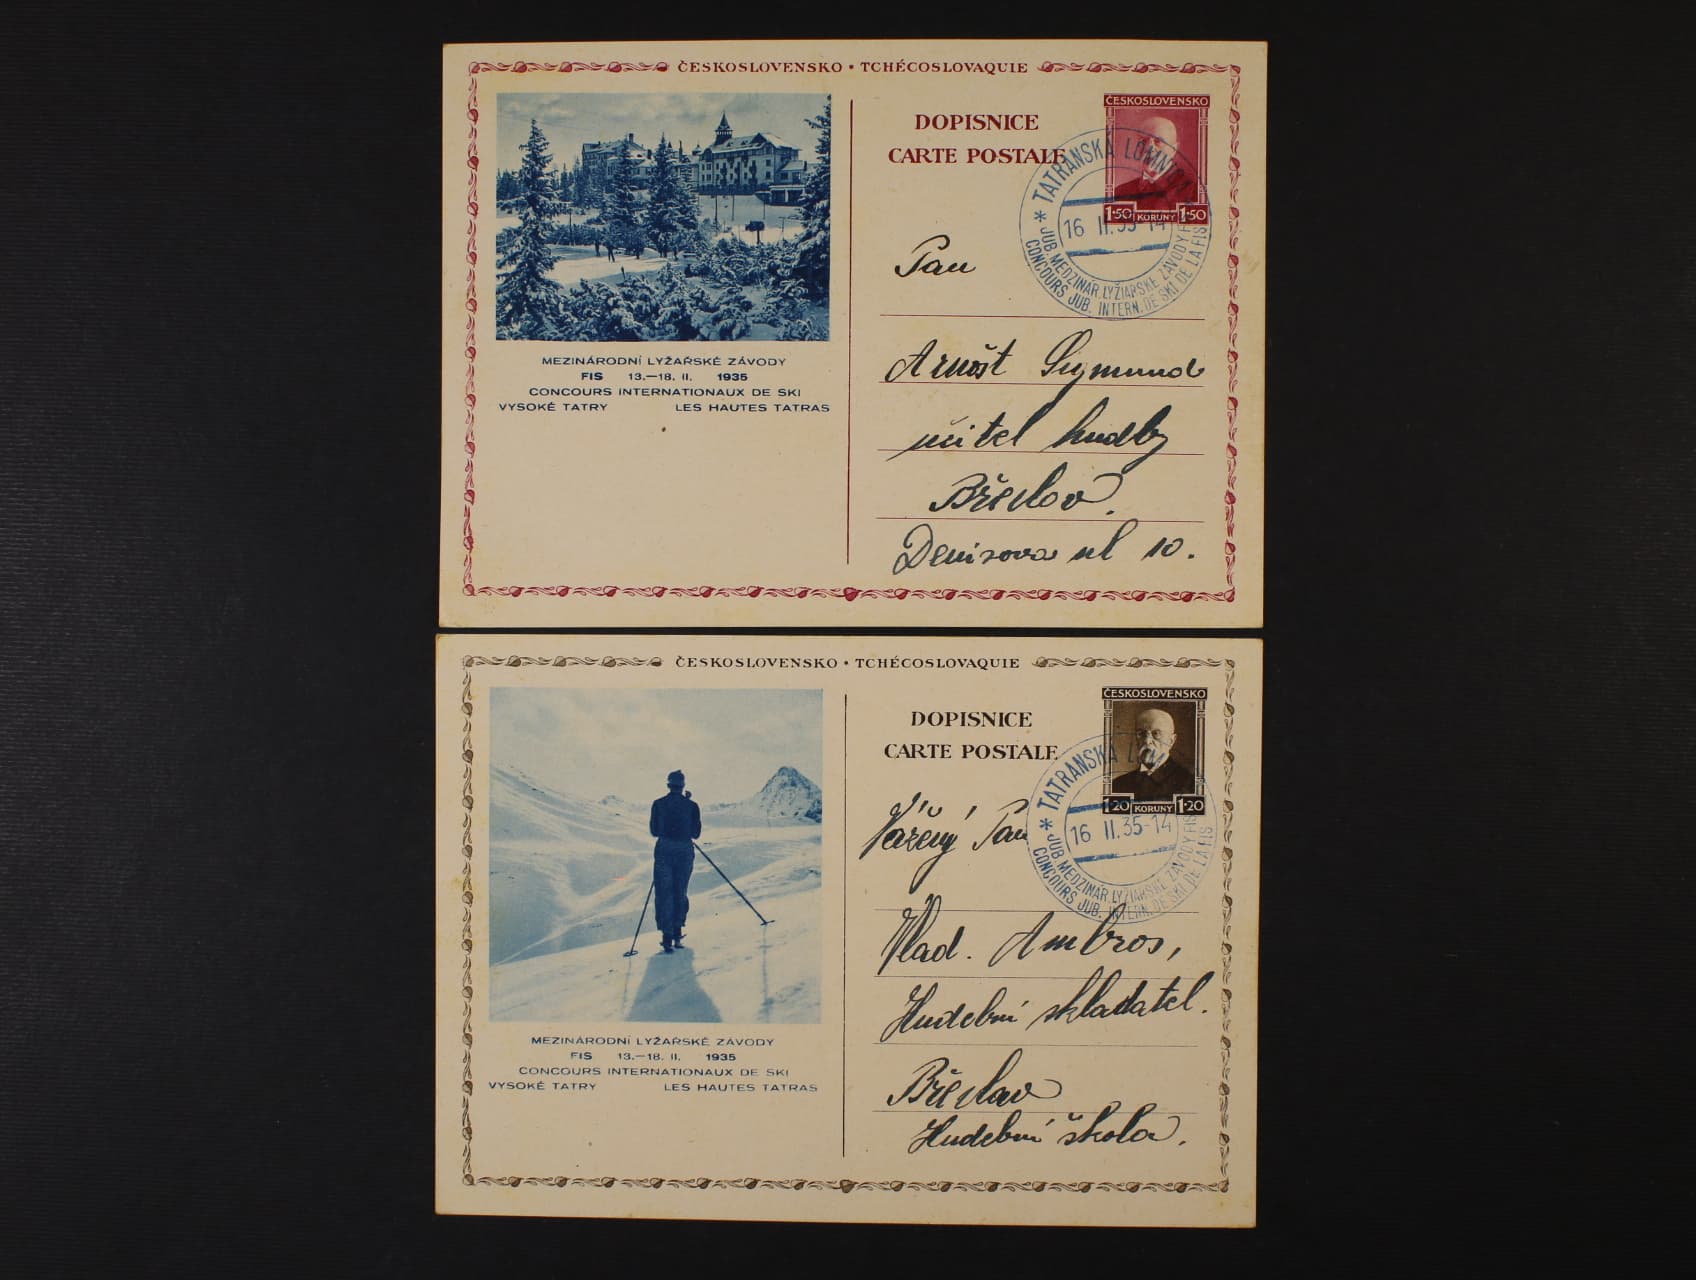 ČESKOSLOVENSKO • TCHÉCOSLOVAQUIE
DOPISNICE
CARTE POSTALE
ČESKOSLOVENSKO
1·50 KORUNY 1·50
* TATRANSKÁ LOMNICA
16 II.35-14
JUB.MEDZINÁR.LYŽIARSKE ZÁVODY FIS
CONCOURS JUB. INTERN. DE SKI DE LA FIS
Pan
Arnošt Sigmund
učitel hudby
Břeclav.
Denisova ul 10.
MEZINÁRODNÍ LYŽAŘSKÉ ZÁVODY
FIS 13.—18. II. 1935
CONCOURS INTERNATIONAUX DE SKI
VYSOKÉ TATRY LES HAUTES TATRAS
ČESKOSLOVENSKO • TCHÉCOSLOVAQUIE
DOPISNICE
CARTE POSTALE
ČESKOSLOVENSKO
1·20 KORUNY 1·20
* TATRANSKÁ LOM
16 II.35-14
JUB.MEDZINÁR.LYŽIARSKE ZÁVODY FIS
CONCOURS JUB. INTERN. DE SKI DE LA FIS
Vážený Pan
Vlad. Ambros,
Hudební skladatel.
Břeclav
Hudební škola.
MEZINÁRODNÍ LYŽAŘSKÉ ZÁVODY
FIS 13.—18. II. 1935
CONCOURS INTERNATIONAUX DE SKI
VYSOKÉ TATRY LES HAUTES TATRAS